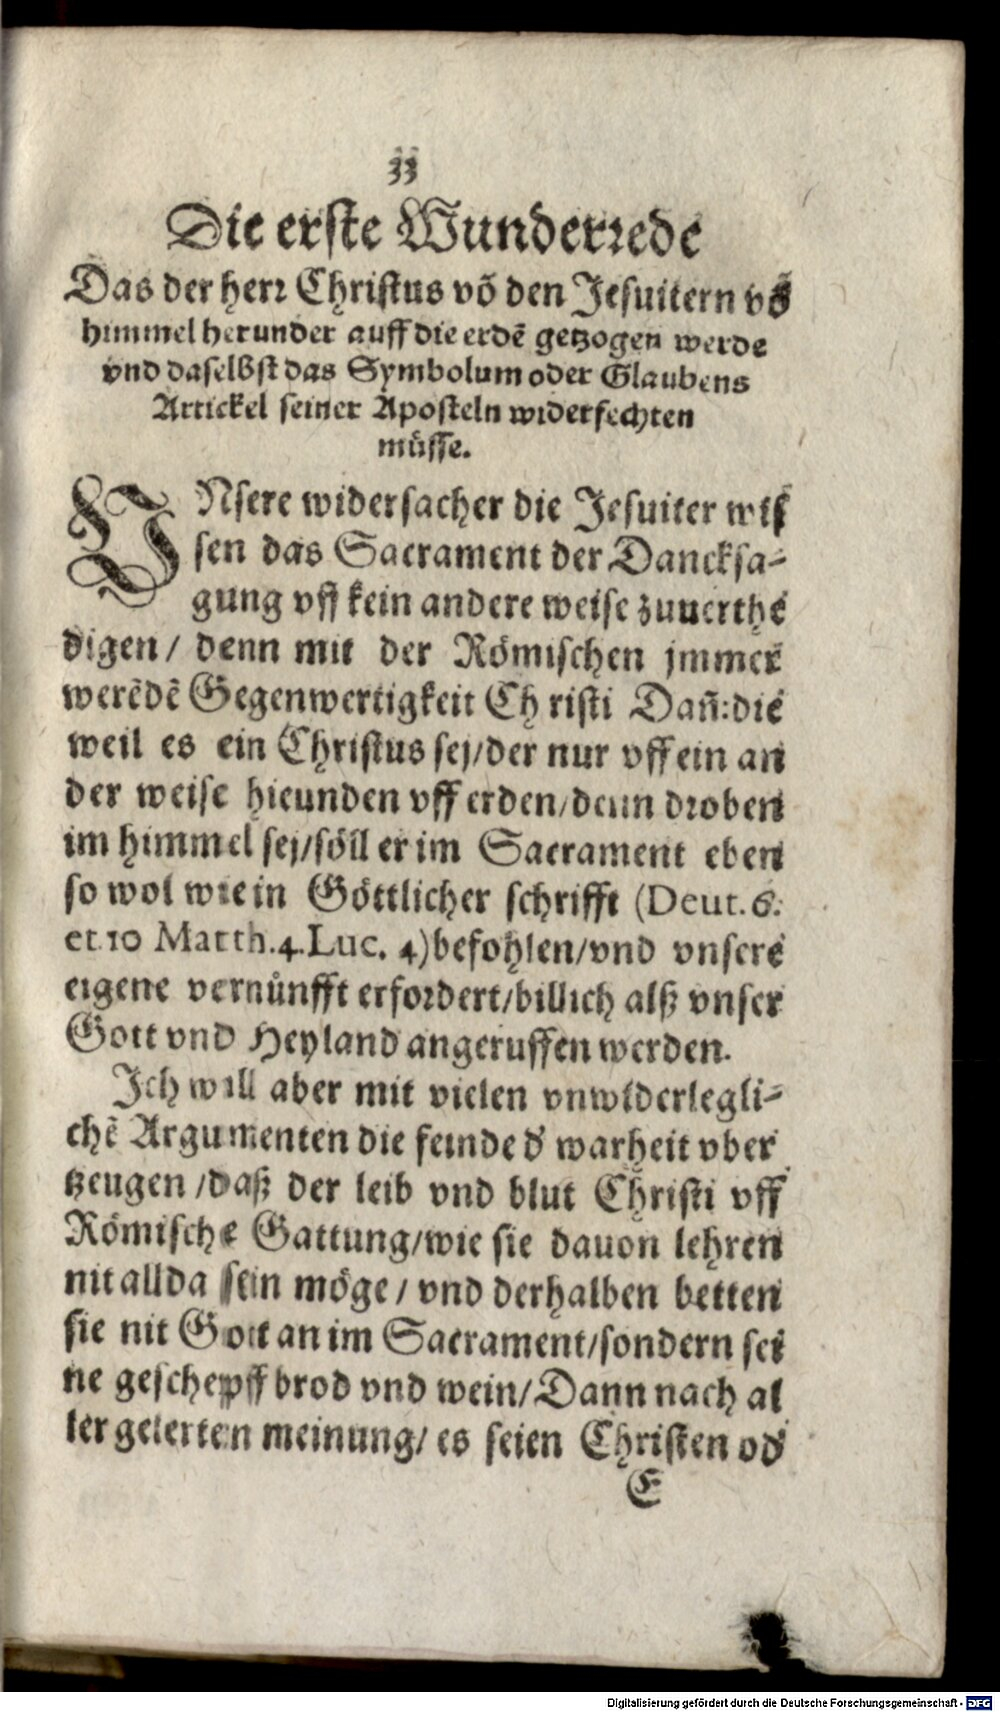 33
Die erste Wunderrede
Das der herr Christus võ den Jesuitern võ
himmel herunder auff die erdẽ getzogen werde
vnd daselbst das Symbolum oder Glaubens
Artickel seiner Aposteln widerfechten
müsse.
VNsere widersacher die Jesuiter wis
sen das Sacrament der Dancksa-
gung vff kein andere weise zuuerthe
digen/ denn mit der Römischen jmmer
werẽdẽ Gegenwertigkeit Christi Dañ: die
weil es ein Christus sej/der nur vff ein an
der weise hieunden vff erden/denn droben
im himmel sej/söll er im Sacrament eben
so wol wie in Göttlicher schrifft (Deut. 6.
et 10 Matth. 4. Luc. 4) befohlen/vnd vnsere
eigene vernünfft erfordert/billich alß vnser
Gott vnd Heyland angeruffen werden.
Jch will aber mit vielen vnwiderlegli-
chẽ Argumenten die feinde d' warheit vber
tzeugen/daß der leib vnd blut Christi vff
Römische Gattung/wie sie dauon lehren
nit allda sein möge/ vnd derhalben betten
sie nit Gott an im Sacrament/sondern sei
ne geschepff brod vnd wein/Dann nach al
ler gelerten meinung/ es seien Christen od'
E
Digitalisierung gefördert durch die Deutsche Forschungsgemeinschaft - DFG